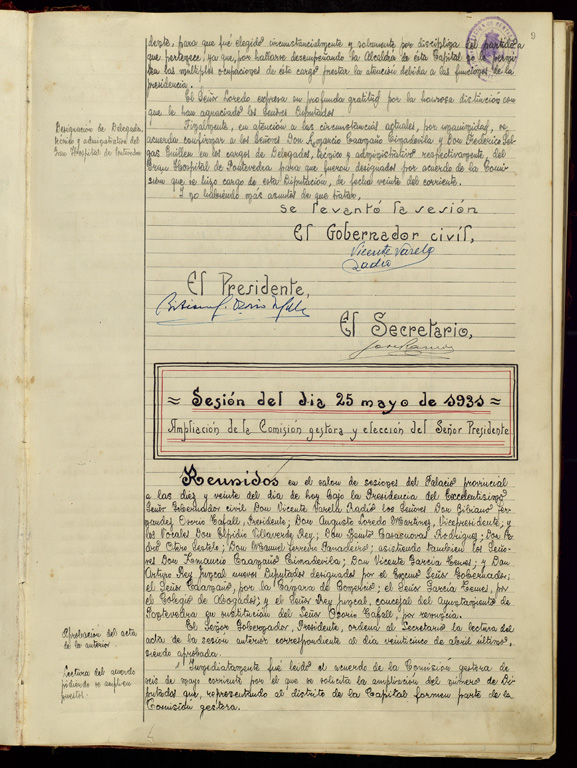 9
deste, para que fué elegido circunstancialmente y solamente por disciplina del partido a
que pertenece, ya que, por hallarse desempeñando la Alcaldía de esta Capital no le permi
ten las múltiples ocupaciones de este cargo prestar la atención debida a las funciones de la
presidencia.
El Señor Loredo expresa su profunda gratitud por la honrosa distinción con
que le han agraciado los Señores Diputados
Designación de Delegados,
técnico y administrativo del
Gran Hospital de Pontevedra
Finalmente, en atención a las circunstancias actuales, por unanimidad, se
acuerda confirmar a los Señores Don Amancio Caamaño Cimadevila y Don Federico
Guillen en los cargos de Delegados, técnico y administrativo respectivamente, del
Gran Hospital de Pontevedra para que fueron designados por acuerdo de la Comi
sión que se hizo cargo de esta Diputación, de fecha veinte del corriente.
Y no habiendo más asuntos de que tratar,
se levantó la sesión
El Gobernador civil,
Vicente Varela
Radio
El Presidente,
El Secretario,
≈ Sesión del dia 25 mayo de 1931 ≈
Ampliación de la Comisión gestora y elección del Señor Presidente
Reunidos en el salon de sesiones del Palacio provincial
a las diez y veinte del dia de hoy bajo la Presidencia del Excelentisimo
Señor Gobernador civil Don Vicente Varela Radio los Señores Don Bibiano Fer-
nandez Osorio Tafall, Presidente; Don Augusto Loredo Martinez, Vicepresidente; y
los Vocales Don Elpidio Villaverde Rey; Don Benito Casasnovas Rodriguez; Don
Otero Don Manuel Ferreira Panadeiro; asistiendo tambien los Seño-
res Don Amancio Caamaño Cimadevila; Don Vicente Garcia Temes; y Don
Arturo Rey nuevos Diputados designados por el Excmo Señor Gobernador;
el Señor Caamaño, por la Cámara de Comercio; el Señor Garcia Temes, por
el Colegio de Abogados; y el Señor Rey concejal del Ayuntamiento de
Pontevedra en sustitución del Señor Osorio Tafall, por renuncia.
Aprobación del acta
de la anterior.
El Señor Gobernador, Presidente, ordena al Secretario la lectura del
acta de la sesión anterior correspondiente al dia veinticinco de abril último,
siendo aprobada.
Lectura del acuerdo
pidiendo se amplien
puestos.
Inmediatamente fué leido el acuerdo de la Comision gestora de
seis de mayo corriente por el que se solicita la ampliación del número de Di
putados que, representando al distrito de la Capital formen parte de la
Comisión gestora.